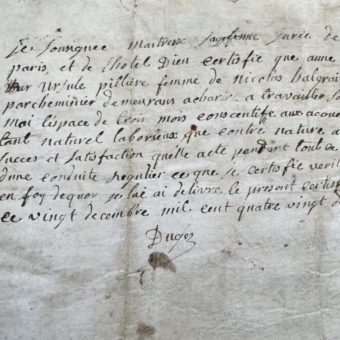 Je Soussignee Maitresse Sagefemme Jurée de
paris, et de l'hotel Dieu Certifie que anne
Ursule pillere femme de nicolas
parcheminier demeurans a travaillee
moi l'espace de trois mois consecutife aux acou
tant naturel laborieux que contre nature a
succes et satisfaction quelle acte pendent tout ce
dune conduite regulier ce que je certifie verit
en foy dequoy je lui ai delivré le present certi
ce vingt decembre mil cent quatre vingt